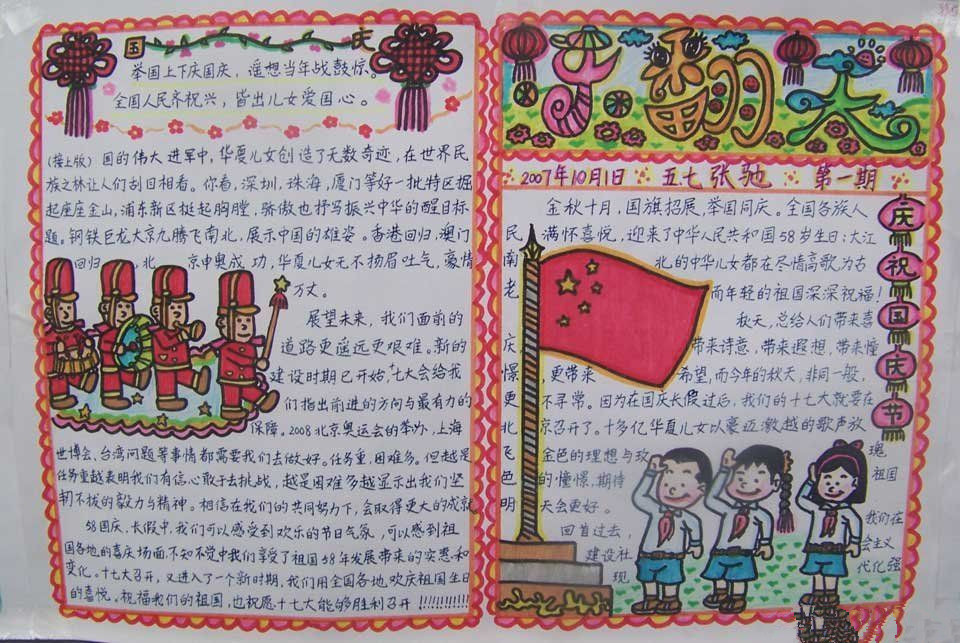 乐翻天
2007年10月1日 五.七 张驰 第一期
庆祝国庆节
金秋十月，国旗招展，举国同庆。全国各族人
民满怀喜悦，迎来了中华人民共和国58岁生日；大江
南北的中华儿女都在尽情高歌，为古
老而年轻的祖国深深祝福！
秋天，总给人们带来喜
庆，带来诗意，带来遐想，带来憧
憬，更带来希望，而今年的秋天，非同一般，
更不寻常。因为在国庆长假过后，我们的十七大就要在
北京召开了。十多亿华夏儿女以豪迈激越的歌声放
飞金色的理想与玫瑰
色的憧憬，期待祖国
明天会更好。
回首过去，我们在
建设社会主义
现代化强
国庆
举国上下庆国庆，遥想当年战鼓惊。
全国人民齐祝兴，皆出儿女爱国心。
(接上版)国的伟大进军中，华夏儿女创造了无数奇迹，在世界民
族之林让人们刮目相看。你看，深圳，珠海，厦门等好一批特区掘
起座座金山，浦东新区挺起胸膛，骄傲也抒写振兴中华的醒目标
题。钢铁巨龙大京九腾飞南北，展示中国的雄姿。香港回归，澳门
回归，北京申奥成功，华夏儿女无不扬眉吐气，豪情
万丈。
展望未来，我们面前的
道路更遥远更艰难。新的
建设时期已开始，十七大会给我
们指出前进的方向与最有力的
保障。2008北京奥运会的举办，上海
世博会、台湾问题等事情都需要我们去做好。任务重，困难多。但越是
任务重越表明我们有信心敢于去挑战，越是困难多越显示出我们坚
韧不拔的毅力与精神。相信在我们的共同努力下，会取得更大的成就
58国庆，长假中，我们可以感受到欢乐的节日气氛，可以感到祖
国各地的喜庆场面，不知不觉中我们享受了祖国58年发展带来的实惠和
变化。十七大召开，又进入了一个新时期，我们用全国各地欢庆祖国生日
的喜悦。祝福我们的祖国，也祝愿十七大能够胜利召开!!!!!!!!!!!